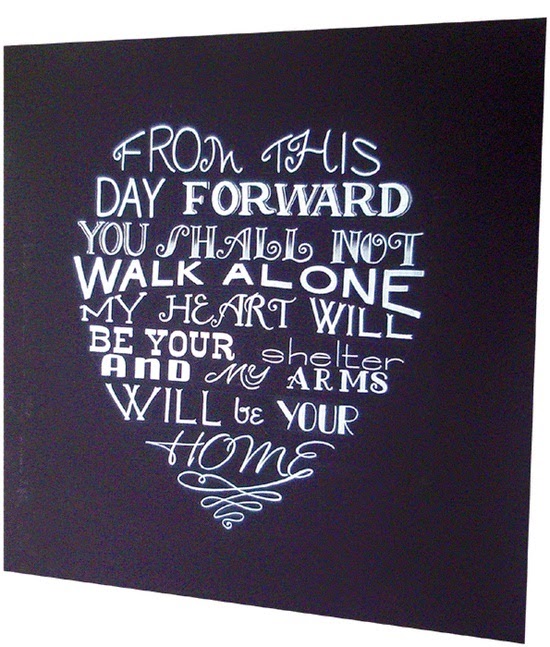 FROM THIS
DAY FORWARD
YOU SHALL NOT
WALK ALONE
MY HEART WILL
BE YOUR shelter
AND MY ARMS
WILL be YOUR
HOME